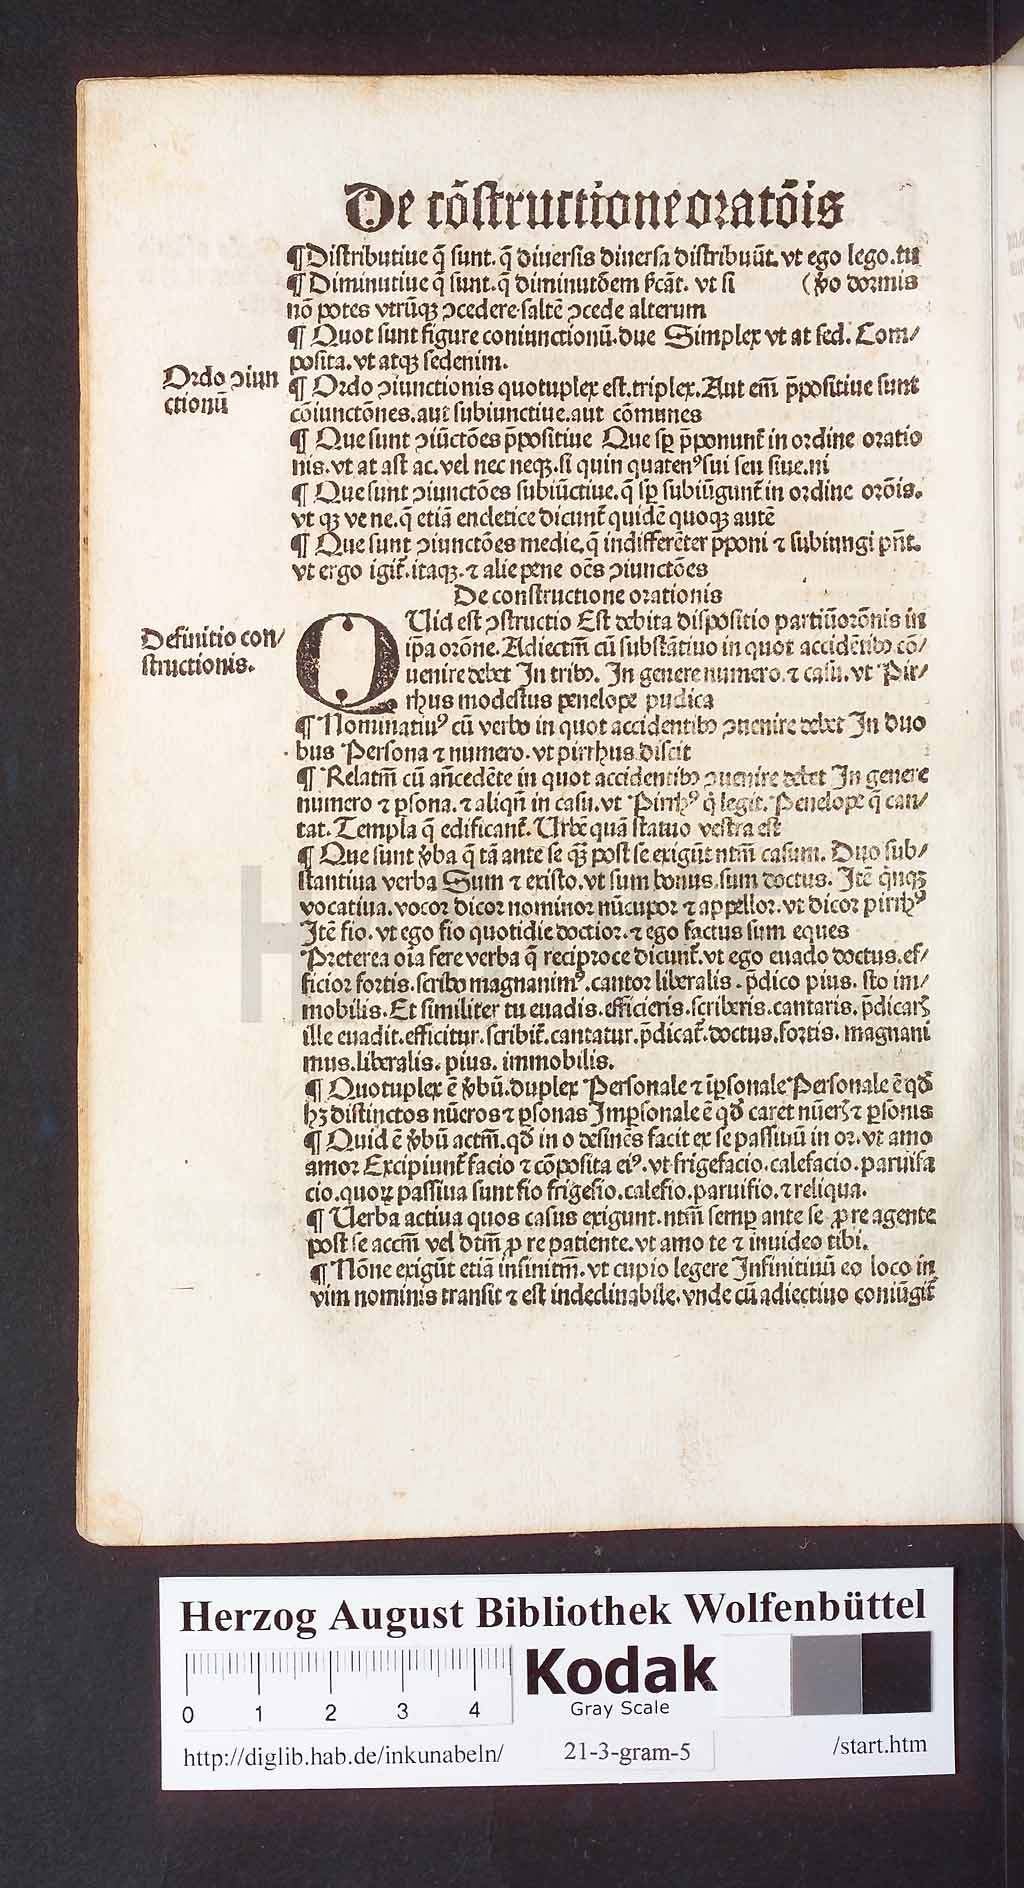 De cōstructione oratōis
¶ Distributiue q̄ sunt. q̄ diuersis diuersa distribuūt. vt ego lego. tu
¶ Diminutiue q̄ sunt. q̄ diminutōem vt si (ꝟo dormis
nō potes vtrūqꝫ ↄcedere. saltē ↄcede alterum
¶ Quot sunt figure coniunctionū. due Simplex vt at sed. Com⸗
posita. vt atqꝫ sedenim.
Ordo ↄiun
ctionū
¶ Ordo ↄiunctionis quotuplex est. triplex. Aut em̄ p̄positiue sunt
cōiunctōnes. aut subiunctiue. aut cōmunes
¶ Que sunt ↄiūctōes p̄positiue Que sꝑ p̄ponunt̄ in ordine oratio
nis. vt at ast ac. vel nec neqꝫ. si quin quatenꝰ sui seu siue. ni
¶ Que sunt ↄiunctōes subiūctiue. q̄ sꝑ subiūgunt̄ in ordine orōis.
vt qꝫ ve ne. q̄ etiā encletice dicunt̄ quidē quoqꝫ autē
¶ Que sunt ↄiunctōes medie. q̄ indifferēter p̄poni ⁊ subiungi pn̄t.
vt ergo igit̄. itaqꝫ. ⁊ alie pene oēs ↄiunctōes
De constructione orationis
Definitio con⸗
structionis.
QUid est ↄstructio Est debita dispositio partiū orōnis in
ip̄a orōne. Adiectm̄ cū substātiuo in quot accidētibꝰ cō⸗
uenire debet In tribꝰ. In genere numero. ⁊ casu. vt Pir⸗
rhus modestus penelope pudica
¶ Nominatiuꝰ cū verbo in quot accidentibꝰ ↄuenire debet In duo
bus Persona ⁊ numero. vt pirrhus discit
¶ Relatm̄ cū an̄cedēte in quot accidentibꝰ ↄuenire debet In genere
numero ⁊ ꝑsona. ⁊ aliqn̄ in casu. vt Pirrhꝰ q̇ legit. Penelope q̄ can⸗
tat. Templa q̄ edificant̄. Urbē quā statuo vestra est
¶ Que sunt ꝟba q̄ tā ante se qꝫ̄ post se exigūt ntm̄ casum. Duo sub⸗
stantiua verba Sum ⁊ existo. vt sum bonus. sum doctus. Itē q̇nqꝫ
vocatiua. vocor dicor nominor nūcupor ⁊ appellor. vt dicor pirrhꝰ
Itē fio. vt ego fio quotidie doctior. ⁊ ego factus sum eques
Preterea oīa fere verba q̄ reciproce dicunt̄. vt ego euado doctus. ef⸗
ficior fortis. scribo magnanimꝰ. cantor liberalis. p̄dico pius. sto im⸗
mobilis. Et similiter tu euadis. efficieris. scriberis. cantaris. p̄dicarꝭ
ille euadit. efficitur. scribit̄. cantatur. p̄dicat̄. doctus. fortis. magnani
mus. liberalis. pius. immobilis.
¶ Quotuplex ē ꝟbū. duplex Personale ⁊ īꝑsonale Personale ē qd̄
hꝫ distinctos nūeros ⁊ ꝑsonas Imꝑsonale ē qd̄ caret nūerꝭ ⁊ ꝑsonis
¶ Quid ē ꝟbū actm̄. qd̄ in o desinēs facit ex se passiuū in or. vt amo
amor Excipiunt̄ facio ⁊ cōposita eiꝰ. vt frigefacio. calefacio. paruifa
cio. quoꝝ passiua sunt fio frigefio. calefio. paruifio. ⁊ reliqua.
¶ Uerba actiua quos casus exigunt. ntm̄ semꝑ ante se ꝓ re agente
post se accm̄ vel dtm̄ ꝓ re patiente. vt amo te ⁊ inuideo tibi.
¶ Nōne exigūt etiā infinitm̄. vt cupio legere Infinitiuū eo loco in
vim nominis transit ⁊ est indeclinabile. vnde cū adiectiuo coniūgit̄
Herzog August Bibliothek Wolfenbüttel
0 1 2 3 4
Kodak
Gray Scale
http://diglib.hab.de/inkunabeln/ 21-3-gram-5 /start.htm